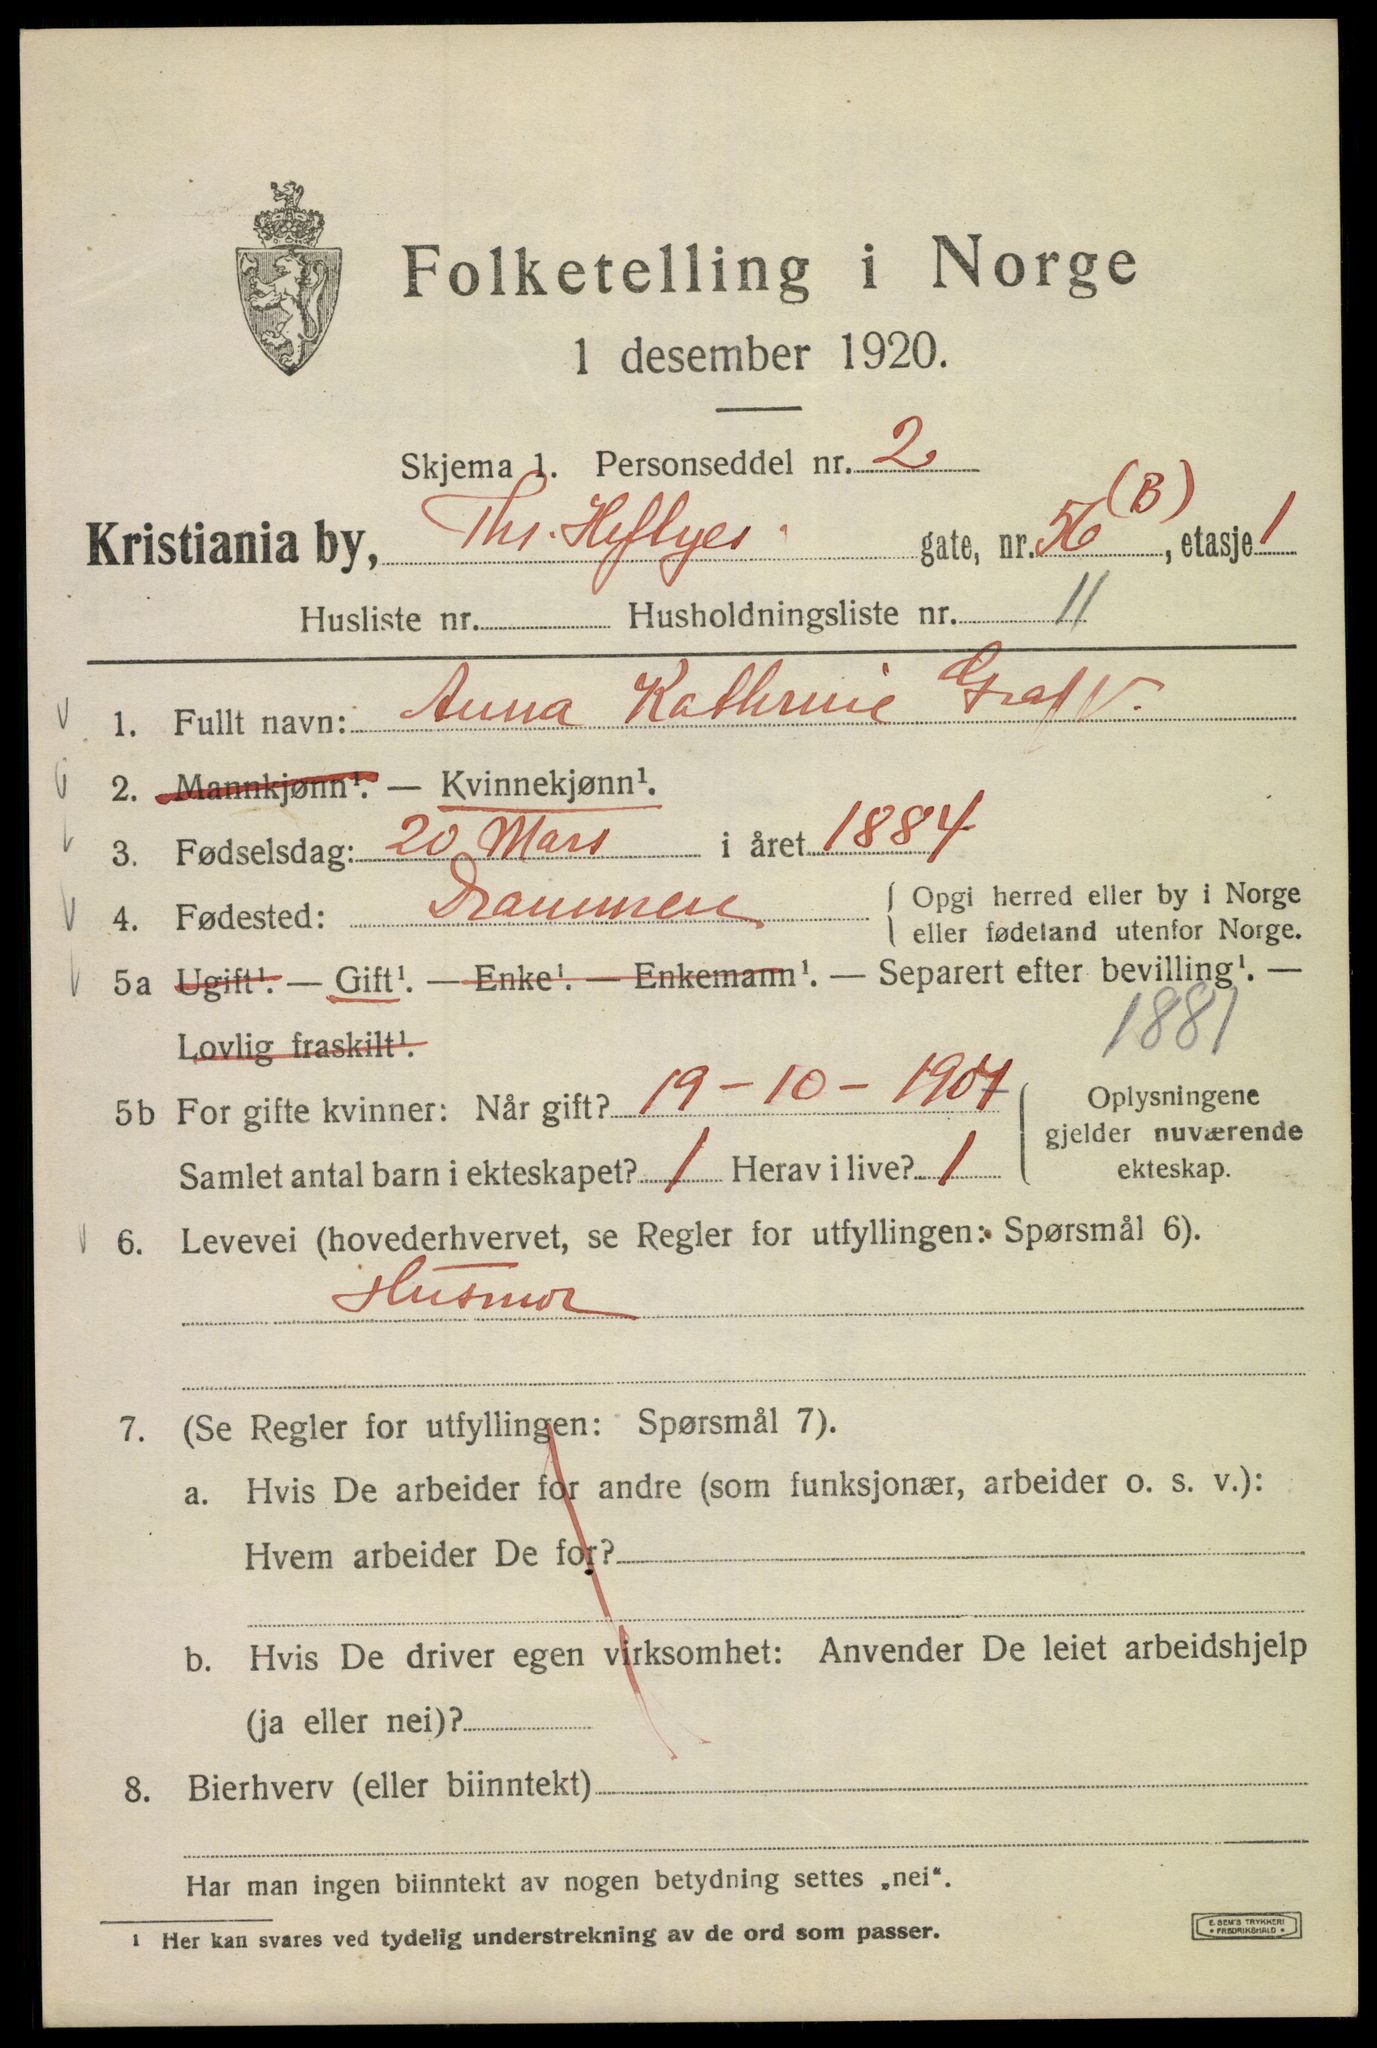 Folketelling i Norge
1 desember 1920.
Skjema 1. Personseddel nr. 2
Kristiania by, Ths. Heftyes gate, nr. 56 (B), etasje 1
Husliste nr. Husholdningsliste nr. 11
1. Fullt navn: Anna Kathrine Graff
2. Mannkjønn¹. — Kvinnekjønn¹.
3. Fødselsdag: 20 Mars i året 1884
4. Fødested: Drammen { Opgi herred eller by i Norge
eller fødeland utenfor Norge.
5a Ugift¹. — Gift¹. — Enke¹. — Enkemann¹. — Separert efter bevilling¹. —
Lovlig fraskilt¹.
1881
5b For gifte kvinner: Når gift? 19 - 10 - 1907
Oplysningene
gjelder nuværende
ekteskap.
Samlet antal barn i ekteskapet? 1 Herav i live? 1
6. Levevei (hovederhvervet, se Regler for utfyllingen: Spørsmål 6).
Husmor
7. (Se Regler for utfyllingen: Spørsmål 7).
a. Hvis De arbeider for andre (som funksjonær, arbeider o. s. v.):
Hvem arbeider De for?
b. Hvis De driver egen virksomhet: Anvender De leiet arbeidshjelp
(ja eller nei)?
8. Bierhverv (eller biinntekt)
Har man ingen biinntekt av nogen betydning settes „nei“.
1 Her kan svares ved tydelig understrekning av de ord som passer.
E. SEM'S TRYKKERI
FREDRIKSHALD